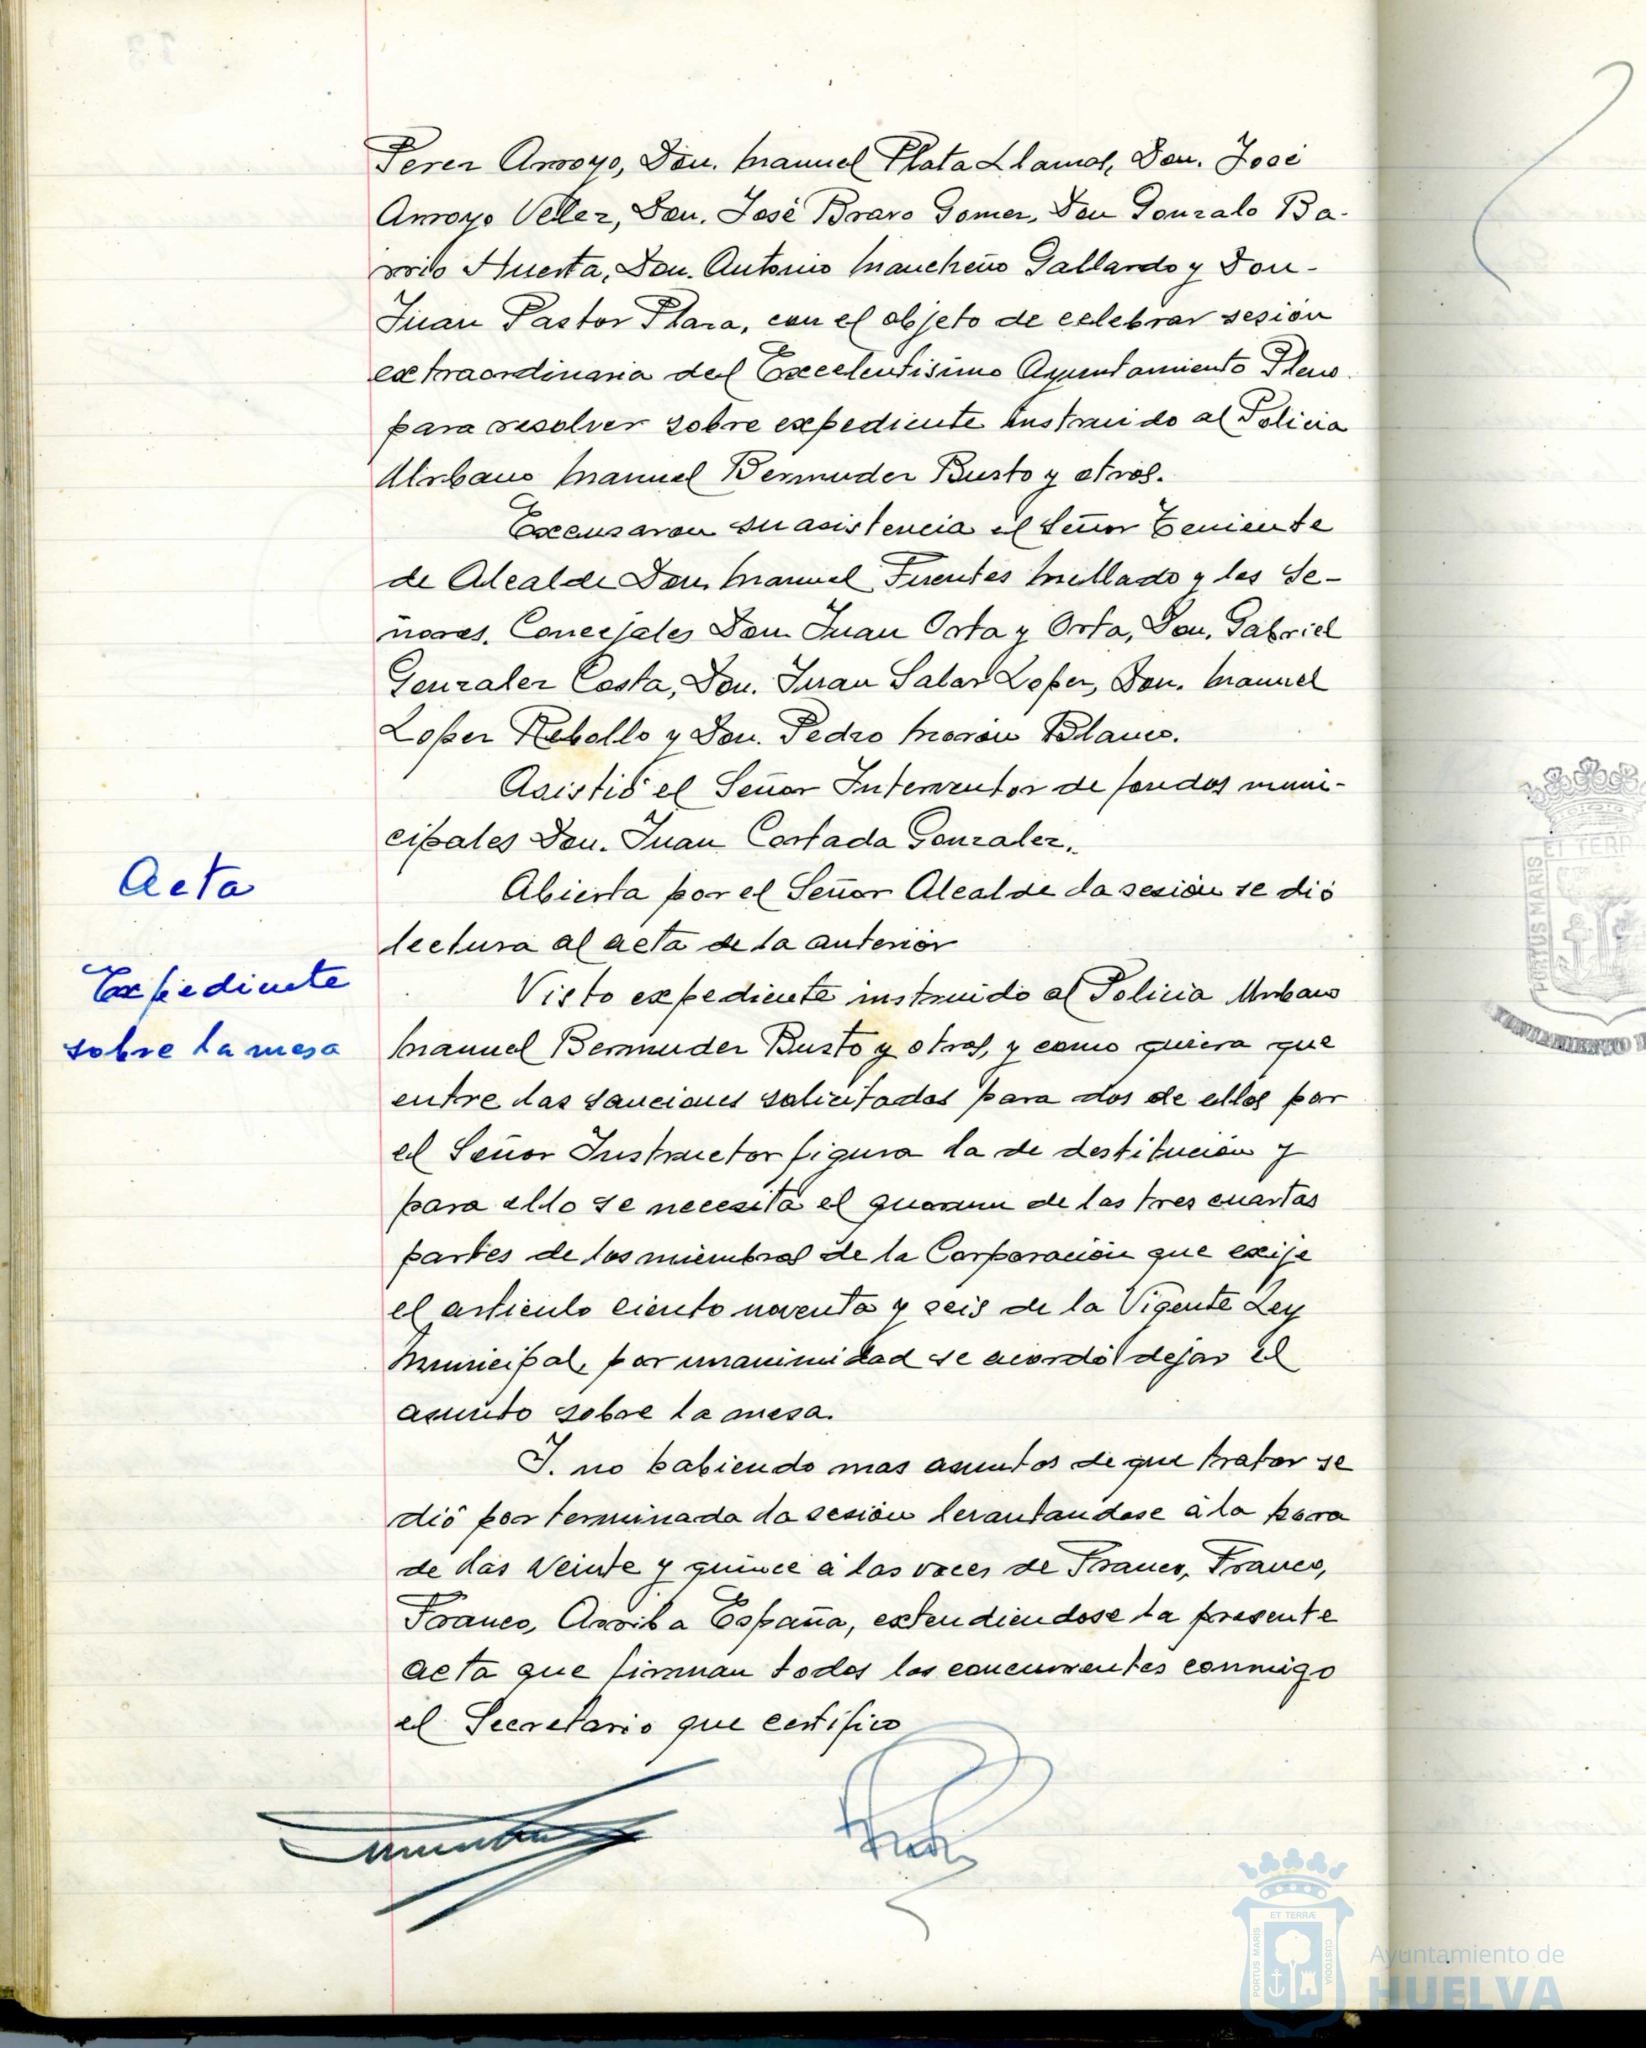 Perez Arroyo, Don. Manuel Plata Llamas, Don. José
Arroyo Vellez, Don. José Bravo Gomez, Don Gonzalo Ba-
rrio Huerta, Don. Antonio Mancheño Gallardo y Don-
Juan Pastor Plaza, con el objeto de celebrar sesión
extraordinaria del Excelentisimo Ayuntamiento Pleno.
para resolver sobre expediente instruido al Policia
Urbano Manuel Bermudez Busto y otros.
Excusaron su asistencia el Señor Teniente
de Alcalde Don. Manuel Fuentes Mellado y los Se-
ñores. Concejales Don Juan Orta y Orta, Don. Gabriel
Gonzalez Costa, Don. Juan Salas Lopez, Don. Manuel
Lopez Rebollo y Don. Pedro Morón Blanco.
Asistió el Señor Interventor de fondos muni-
cipales Don. Juan Cortada Gonzalez.
Acta
Abierta por el Señor Alcalde la sesión se dió
lectura al acta de la anterior
Expediente
sobre la mesa
Visto expediente instruido al Policia Urbano
Manuel Bermudez Busto y otros, y como quiera que
entre las sanciones solicitadas para dos de ellos por
el Señor Instructor figura la de destitución y
para ello se necesita el quorum de las tres cuartas
partes de los miembros de la Corporación que exije
el articulo ciento noventa y seis de la Vigente Ley
Municipal, por unanimidad se acordó dejar el
asunto sobre la mesa.
Y. no habiendo mas asuntos de que tratar se
dió por terminada la sesión levantandose á la hora
de las veinte y quince á las voces de Franco, Franco,
Franco, Arriba España, extendiendose la presente
acta que firman todos los concurrentes conmigo
el Secretario que certifico
PORTUS MARIS
ET TERRÆ
CUSTODIA
Ayuntamiento de
HUELVA